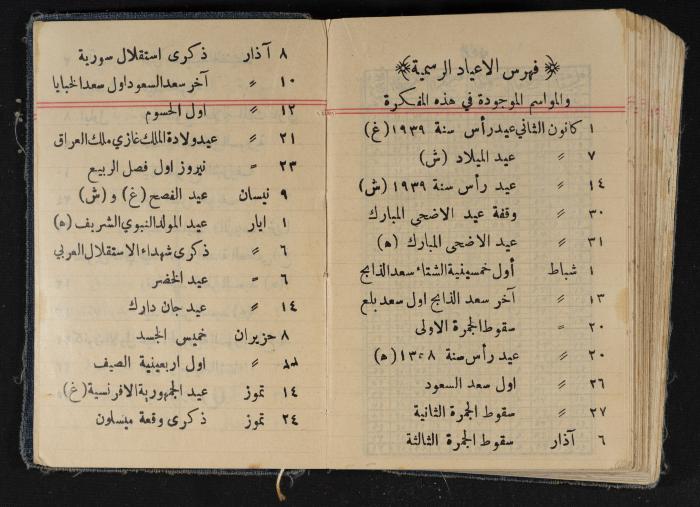 ﴿ فهرس الاعياد الرسمية ﴾
والمواسم الموجودة في هذه المفكرة
١ كانون الثاني عيد رأس سنة ١٩٣٩ (غ)
٧ ״ عيد الميلاد (ش)
١٤ ״ عيد رأس سنة ١٩٣٩ (ش)
٣٠ ״ وقفة عيد الاضحى المبارك
٣١ ״ عيد الاضحى المبارك (ه)
١ شباط أول خمسينية الشتاء سعد الذابح
١٣ ״ آخر سعد الذابح اول سعد بلع
٢٠ ״ سقوط الجمرة الاولى
٢٠ ״ عيد رأس سنة ١٣٥٨ (ه)
٢٦ ״ اول سعد السعود
٢٧ ״ سقوط الجمرة الثانية
٦ آذار سقوط الجمرة الثالثة
٨ آذار ذكرى استقلال سورية
١٠ ״ آخر سعد السعود اول سعد الخبايا
١٢ ״ اول الحسوم
٢١ ״ عيد ولادة الملك غازي ملك العراق
٢٣ ״ نيروز اول فصل الربيع
٩ نيسان عيد الفصح (غ) و (ش)
١ ايار عيد المولد النبوي الشريف (ه)
٦ ״ ذكرى شهداء الاستقلال العربي
٦ ״ عيد الخضر
١٤ ״ عيد جان دارك
٨ حزيران خميس الجسد
״ اول اربعينية الصيف
١٤ تموز عيد الجمهورية الافرنسية (غ)
٢٤ تموز ذكرى وقعة ميسلون